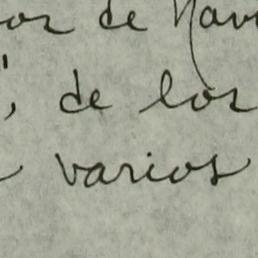 or de Nav
, de los
varios